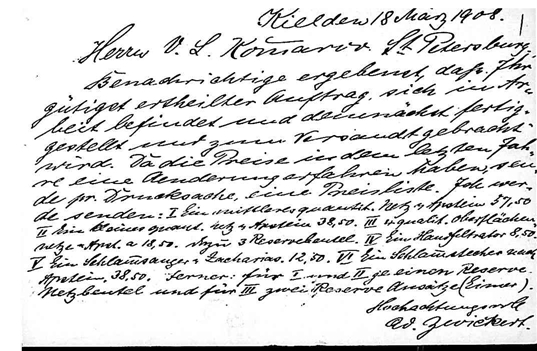 Kiel den 18 März 1908.
Herrn V. L. Komarov. St. Petersburg.
Benachrichtige ergebenst, dass Ihr
gütigst ertheilter Auftrag sich in Ar-
beit befindet und demnächst fertig-
gestellt und zum Versandt gebracht
wird. Da die Preise in dem letzten Jah-
re eine Aenderung erfahren haben, sen-
de pr. Drucksache, eine Preisliste. Ich wer-
de senden: I Ein mittleres quantit. Netz n. Apstein 57,50
II Ein kleines quant. Netz n. Apstein 38,50. III qualit. Oberflächen-
netze n. Apst. a 18,50. 3 Reservebeutel. IV Ein Hansfiltrator 8,50.
V Ein Schlamsauger n. Zacharias. 12,50. VI Ein Schlamstecher nach
Apstein. 38,50. Ferner: für I und II je einen Reserve
Netzbeutel und für III zwei Reserve Ansätze (Eimer).
Hochachtungsvoll
Ad. Zwickert.